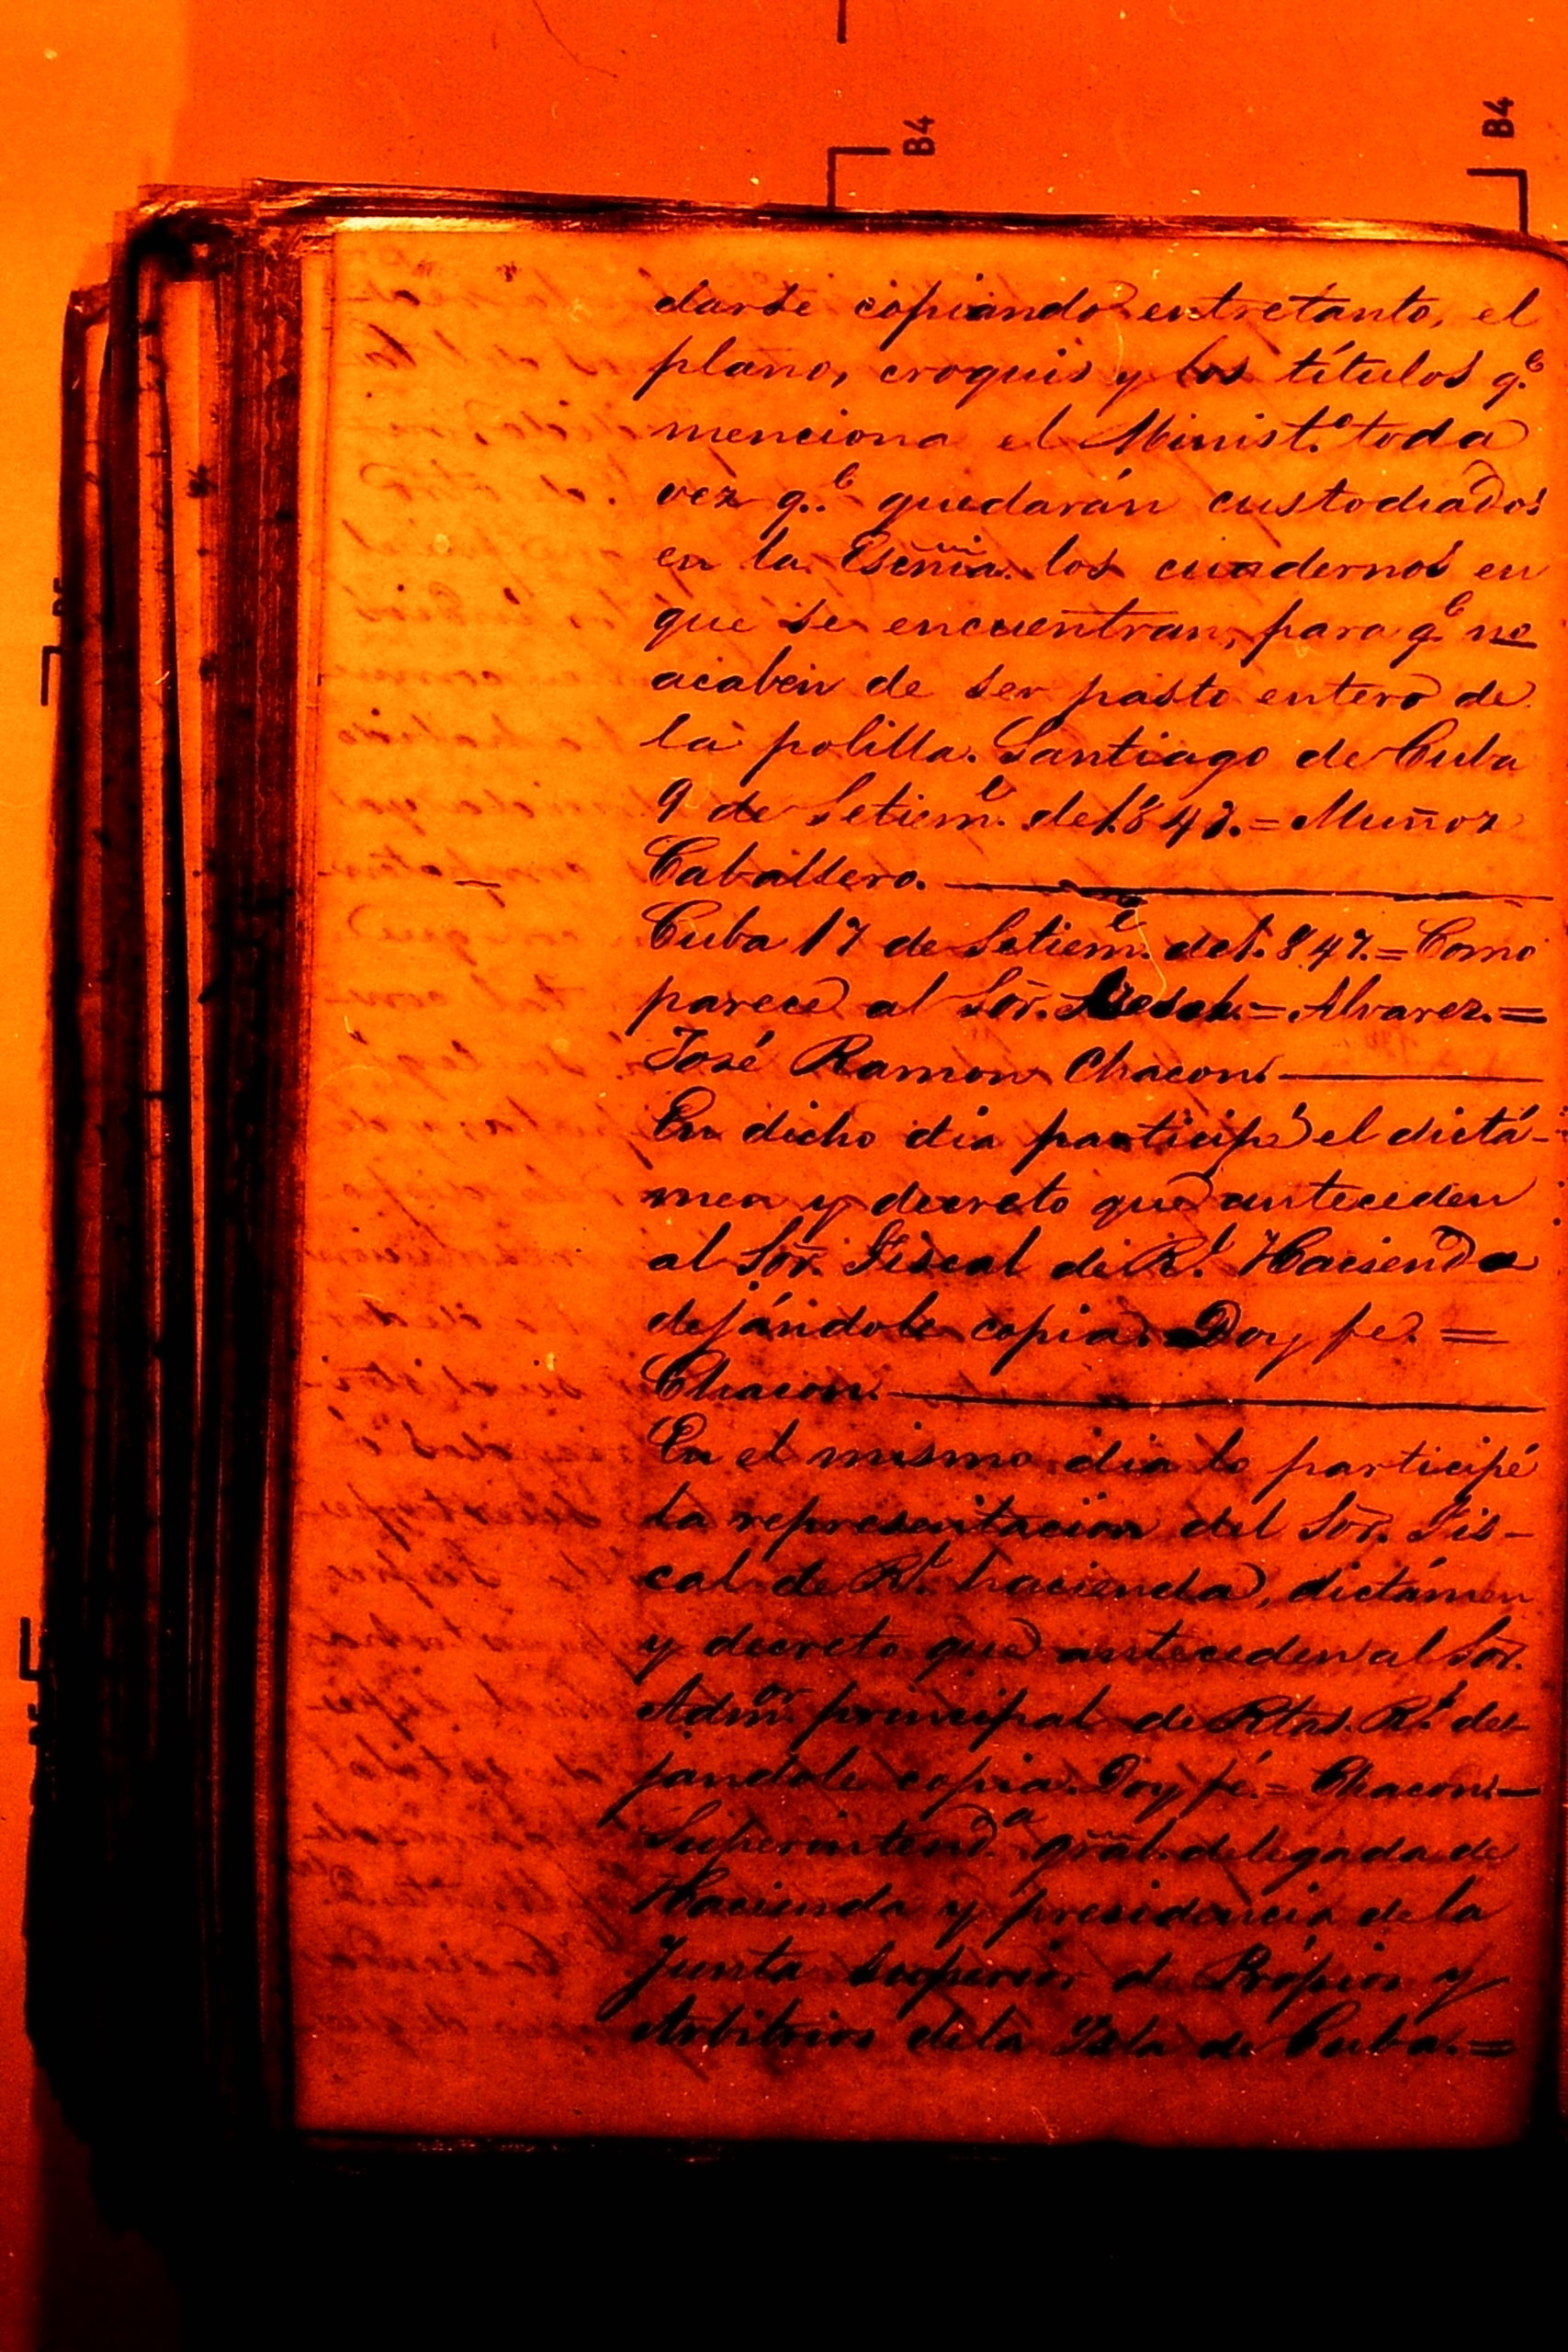 B4
B4
darse copiando entretanto, el
plano, croquis y los títulos q.e
menciona el Minist.o toda
vez q.e quedarán custodiados
en la Escñia. los cuadernos en
que se encuentran, para q.e no
acaben de ser pasto entero de
la polilla. Santiago de Cuba
9 de Setiem.e de 1.847.= Muñoz
Caballero.
Cuba 17 de Setiem.e de 1.847.= Como
parece al Sor. = Alvarez.=
José Ramon Chacon.
En dicho dia participé el dictá-
men y decreto que anteceden
al Sor. Fiscal de R.l Hacienda
dejándole copia. Doy fe. =
Chacon.
En el mismo dia lo participé
la representacion del Sor. Fis-
cal de R.l hacienda, dictámen
y decreto que anteceden al Sor.
Adm.or principal de Rtas. R.s de-
jandole copia. Doy fé.= Chacon.=
Superintend.a gral. delegada de
Hacienda y presidencia de la
Junta superior de Própios y
Arbitrios de la Isla de Cuba.=